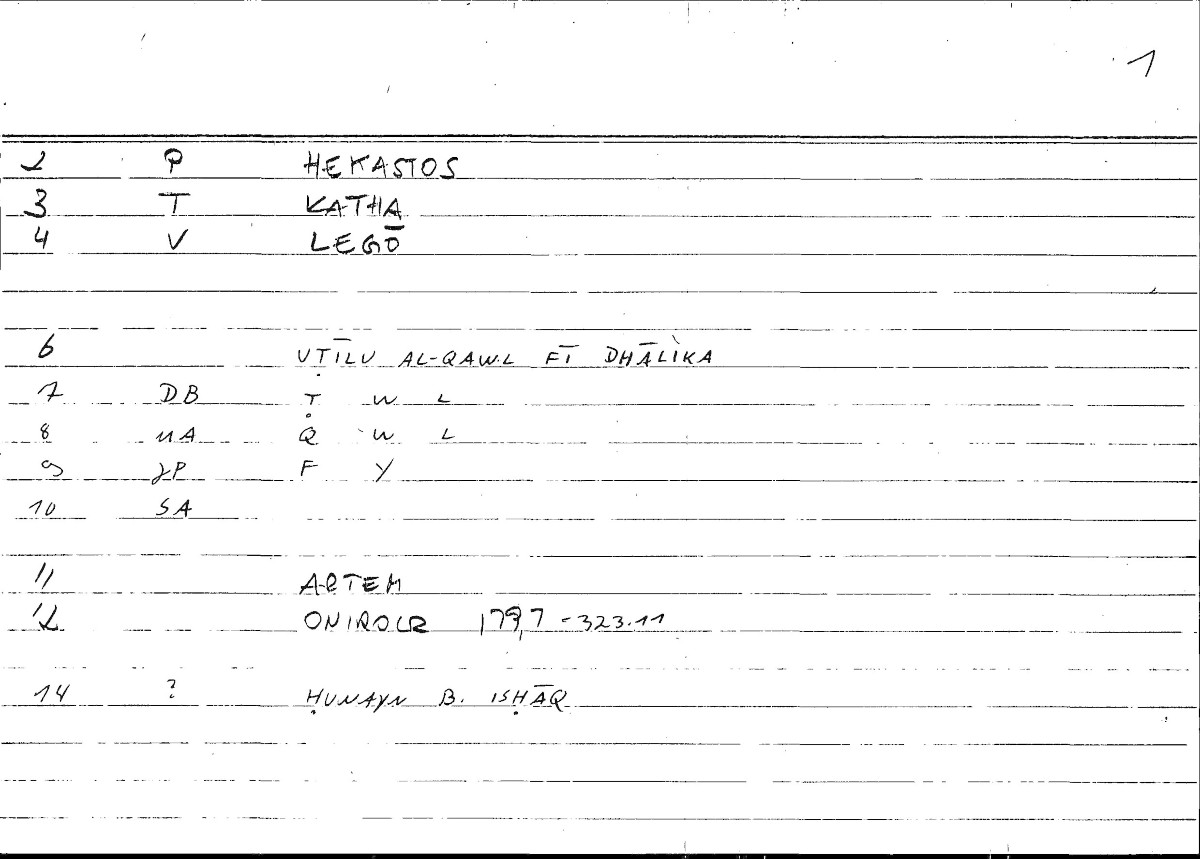 1
2 P HEKASTOS
3 T KATHA
4 V LEGŌ
6 UṬĪLU AL-QAWL FĪ DHĀLIKA
7 DB Ṭ W L
8 MA Q W L
9 JP F Y
10 SA
11 ARTEM
12 ONIROCR 179,7-323.11
14 ? ḤUNAYN B. ISḤĀQ